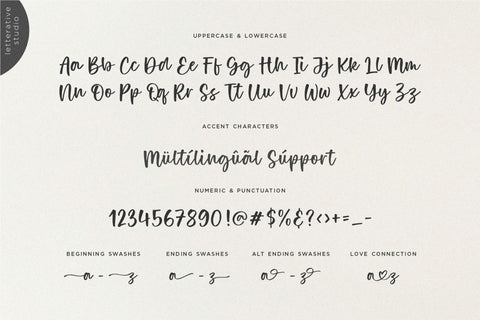 letterative
studio
UPPERCASE & LOWERCASE
Aa Bb Cc Dd Ee Ff Gg Hh Ii Jj Kk Ll Mm
Nn Oo Pp Qq Rr Ss Tt Uu Vv Ww Xx Yy Zz
ACCENT CHARACTERS
Mültílingûãl Súpport
NUMERIC & PUNCTUATION
1234567890!@#$%&?<>+=_-
BEGINNING SWASHES
ENDING SWASHES
ALT ENDING SWASHES
LOVE CONNECTION
a - z
a - z
a - z
a♡z